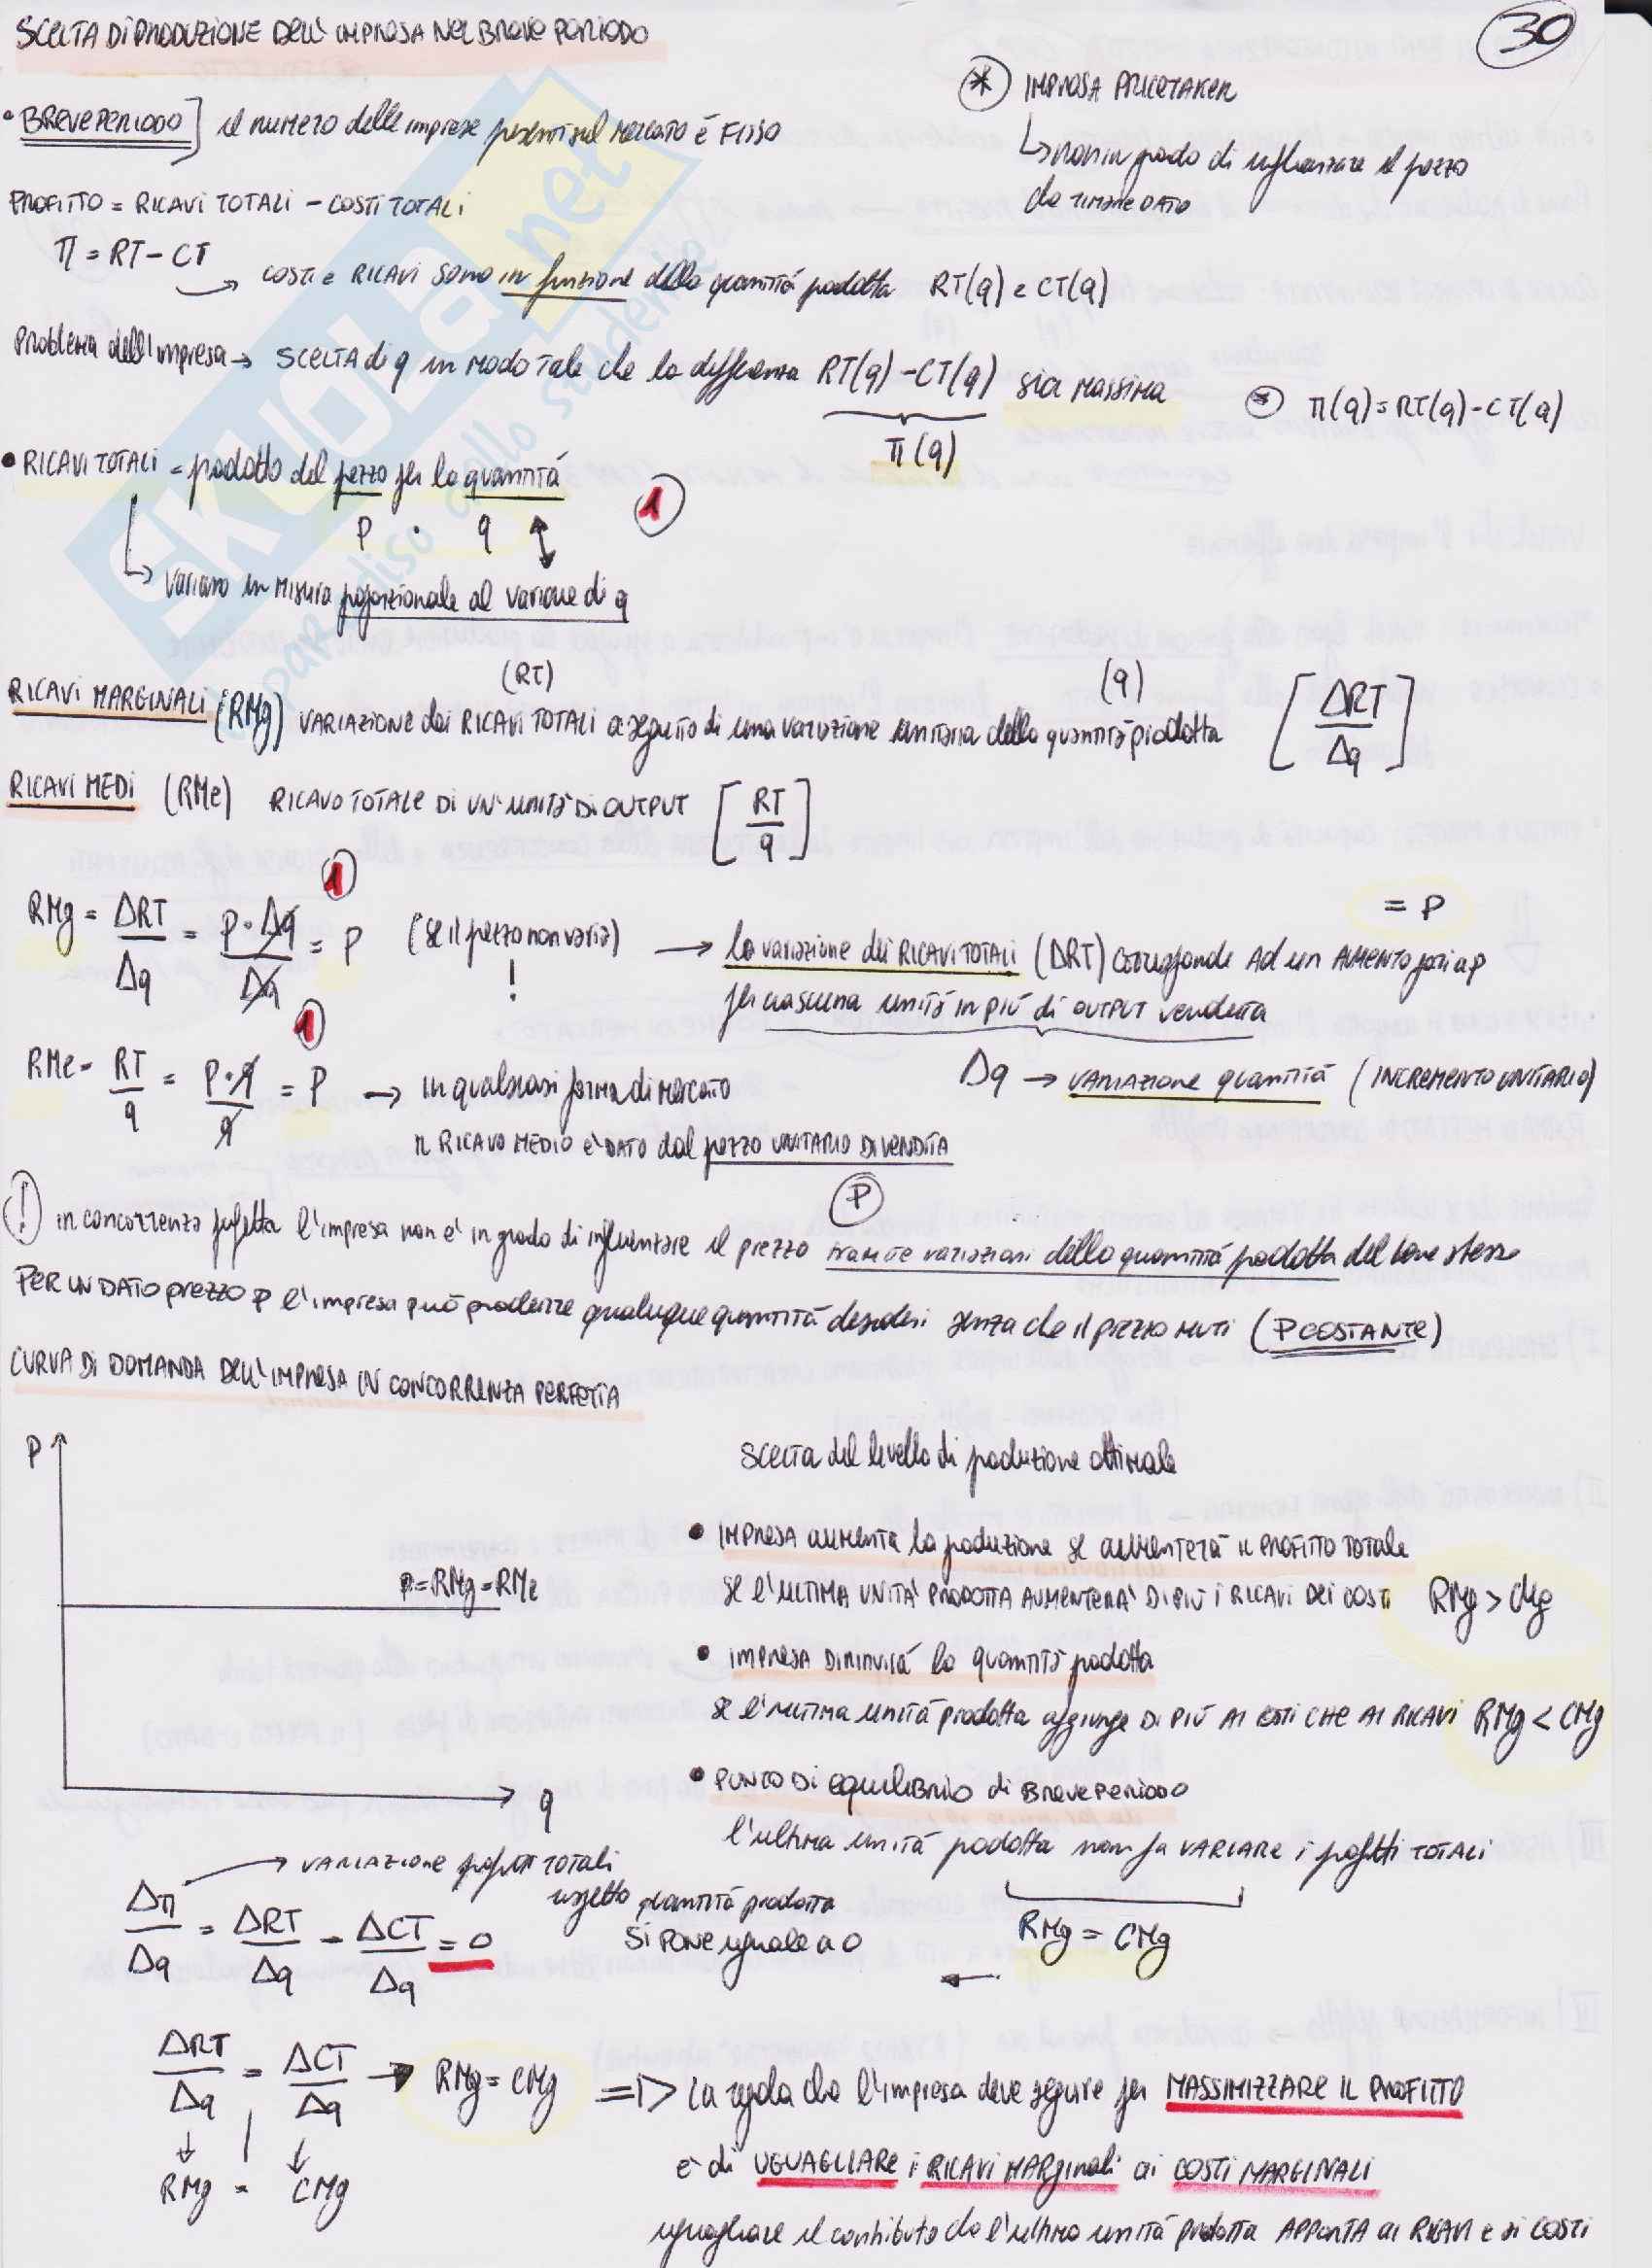 SCELTA DI PRODUZIONE DELL'IMPRESA NEL BREVE PERIODO
30
* IMPRESA PRICETAKER
↳ non in grado di influenzare il prezzo
che rimane DATO
• BREVE PERIODO] il numero delle imprese presenti sul mercato è FISSO
PROFITTO = RICAVI TOTALI - COSTI TOTALI
π = RT - CT
→ COSTI e RICAVI sono in funzione della quantità prodotta RT(q) e CT(q)
Problema dell'impresa → SCELTA di q in modo tale che la differenza RT(q) - CT(q) sia massima
π(q)
* π(q) = RT(q) - CT(q)
• RICAVI TOTALI = prodotto del prezzo per la quantità
P · q ↕ 1
↳ variano in misura proporzionale al variare di q
(RT) (q)
RICAVI MARGINALI (RMg) VARIAZIONE dei RICAVI TOTALI a seguito di una variazione unitaria della quantità prodotta [ΔRT/Δq]
RICAVI MEDI (RMe) RICAVO TOTALE DI UN'UNITÀ DI OUTPUT [RT/q]
1
RMg = ΔRT/Δq = P·Δq/Δq = P (se il prezzo non varia) !
= P
→ la variazione dei RICAVI TOTALI (ΔRT) corrisponde AD un AUMENTO pari a p
per ciascuna unità in più di OUTPUT venduta
Δq → VARIAZIONE quantità (INCREMENTO UNITARIO)
1
RMe = RT/q = P·q/q = P → in qualsiasi forma di mercato
IL RICAVO MEDIO è DATO dal prezzo UNITARIO DI VENDITA
P
! in concorrenza perfetta l'impresa non è in grado di influenzare il prezzo tramite variazioni della quantità prodotta del bene stesso
PER UN DATO prezzo p l'impresa può produrre qualunque quantità desideri senza che il prezzo muti (P COSTANTE)
CURVA DI DOMANDA DELL'IMPRESA IN CONCORRENZA PERFETTA
P
p = RMg = RMe
q
SCELTA del livello di produzione ottimale
• IMPRESA aumenta la produzione se aumenterà il PROFITTO TOTALE
se l'ULTIMA UNITÀ PRODOTTA AUMENTERÀ DI PIÙ i RICAVI DEI COSTI RMg > CMg
• IMPRESA DIMINUIRÀ la quantità prodotta
se l'ultima unità prodotta aggiunge DI PIÙ AI COSTI CHE AI RICAVI RMg < CMg
• PUNTO DI equilibrio di BREVE PERIODO
l'ultima unità prodotta non fa VARIARE i profitti TOTALI
RMg = CMg
←
→ VARIAZIONE profitti TOTALI
rispetto quantità prodotta
Δπ/Δq = ΔRT/Δq - ΔCT/Δq = 0
SI PONE uguale a 0
ΔRT/Δq = ΔCT/Δq → RMg = CMg ⇒ La regola che l'impresa deve seguire per MASSIMIZZARE IL PROFITTO
↓ ↓
RMg = CMg
è di UGUAGLIARE i RICAVI MARginali ai COSTI MARGINALI
uguagliare il contributo che l'ultima unità prodotta APPORTA ai RICAVI e ai COSTI
SKUOLA.net
paradiso dello studente